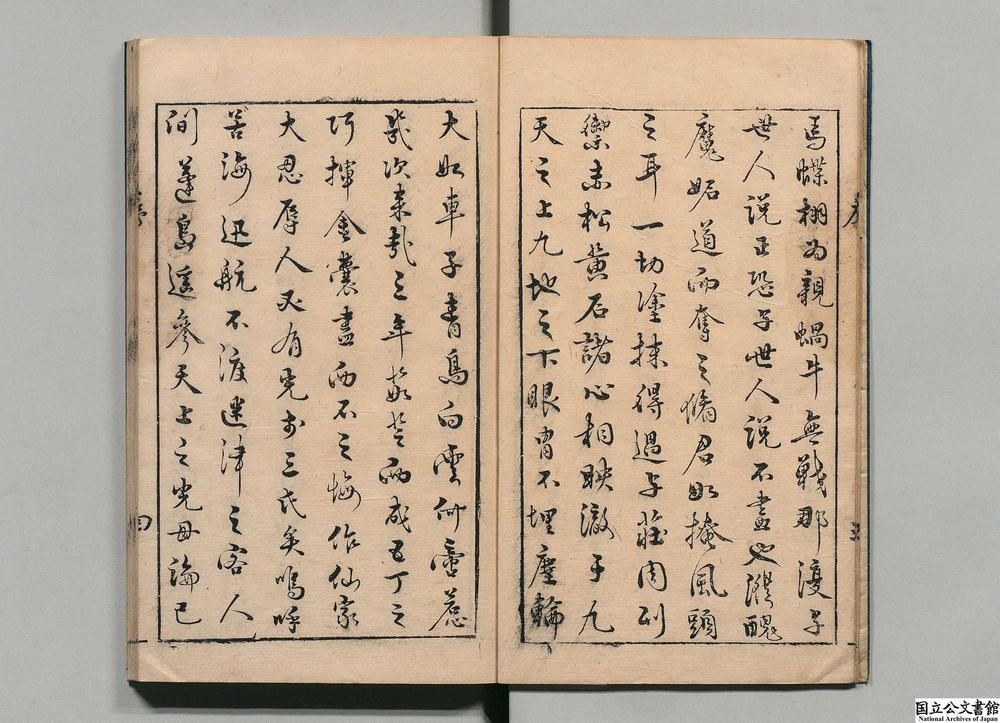 焉蝶栩为親蝸牛無戰那漫子
世人說正恐子世人說不盡也濮醜
魔妬道而奪之脩君如掩風頭
之耳一切塗抹得過与莊周列
禦赤松黄石諸心相映澈于九
天之上九地之下眼睛不埋塵輪
大如車子青鳥白雲
幾次来 三年 而成五丁之
巧揮金囊盡而不之悔作仙家
大忍辱人又有光於三氏矣嗚呼
苦海迅航不渡迷津之客人
间蓬島遥參天上之光毋論已
国立公文書館
National Archives of Japan